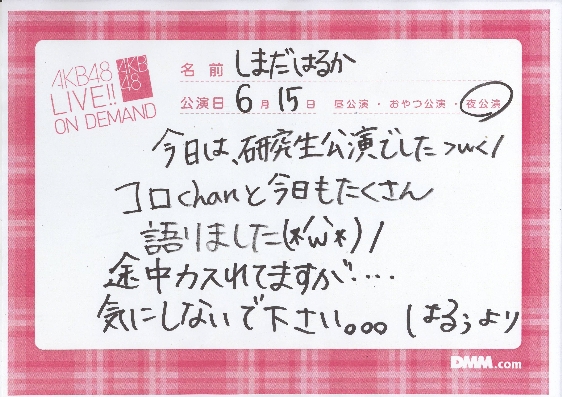 AKB48
LIVE!!
ON DEMAND
AKB
48
名前 しまだはるか
公演日 6月15日 昼公演・おやつ公演・夜公演
今日は、研究生公演でした >ω</
コロchanと今日もたくさん
語りました(*'ω'*)/
途中カスれてますが‥‥
気にしないで下さい。。。 はるぅより
DMM.com